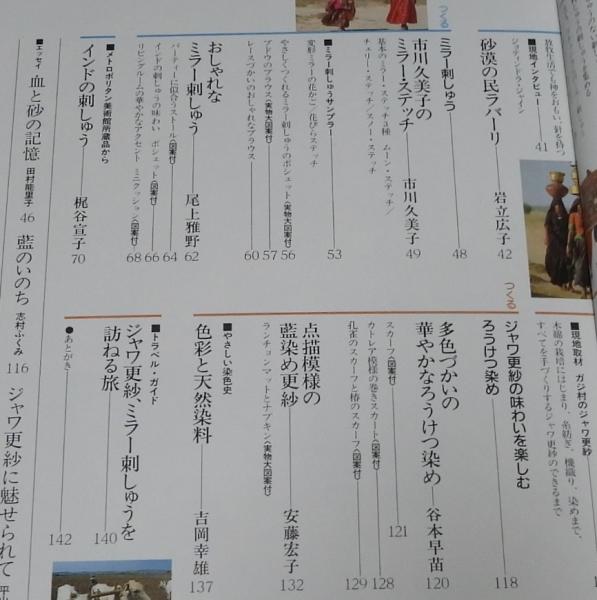 つくる
■現地インタビュー
放牧生活でも神をおもい、針を持つ
ジョティンドラ・ジャイン
41
砂漠の民ラバーリ
岩立広子
42
ミラー刺しゅう
48
市川久美子の
ミラー・ステッチ
市川久美子
49
基本のミラー・ステッチ3種 ムーン・ステッチ/
チェリー・ステッチ/スノー・ステッチ
■ミラー刺しゅうサンプラー
53
変形ミラーの花かご/花びらステッチ
やさしくつくれるミラー刺しゅうのポシェット〈実物大図案付〉
56
ブドウのブラウス〈実物大図案付〉
57
レースづかいのおしゃれなブラウス
60
おしゃれな
ミラー刺しゅう
尾上雅野
62
パーティーに似合うストール〈図案付〉
64
インドの刺しゅうの味わい ポシェット〈図案付〉
66
リビングルームの華やかなアクセント ミニクッション〈図案付〉
68
■メトロポリタン美術館所蔵品から
インドの刺しゅう
梶谷宣子
70
■現地取材 ガジ村のジャワ更紗
木綿の栽培にはじまり、糸紡ぎ、機織り、染めまで、
すべてを手づくりするジャワ更紗のできるまで
つくる
ジャワ更紗の味わいを楽しむ
ろうけつ染め
118
多色づかいの
華やかなろうけつ染め
谷本早苗
120
スカーフ〈図案付〉
121
カトレア模様の巻きスカート〈図案付〉
128
孔雀のスカーフと椿のスカーフ〈図案付〉
129
点描模様の
藍染め更紗
安藤宏子
132
ランチョンマットとナプキン〈実物大図案付〉
■やさしい染色史
色彩と天然染料
吉岡幸雄
137
■トラベル・ガイド
ジャワ更紗、ミラー刺しゅうを
訪ねる旅
140
●あとがき
142
■エッセイ 血と砂の記憶 田村能里子 46 藍のいのち 志村ふくみ 116 ジャワ更紗に魅せられて